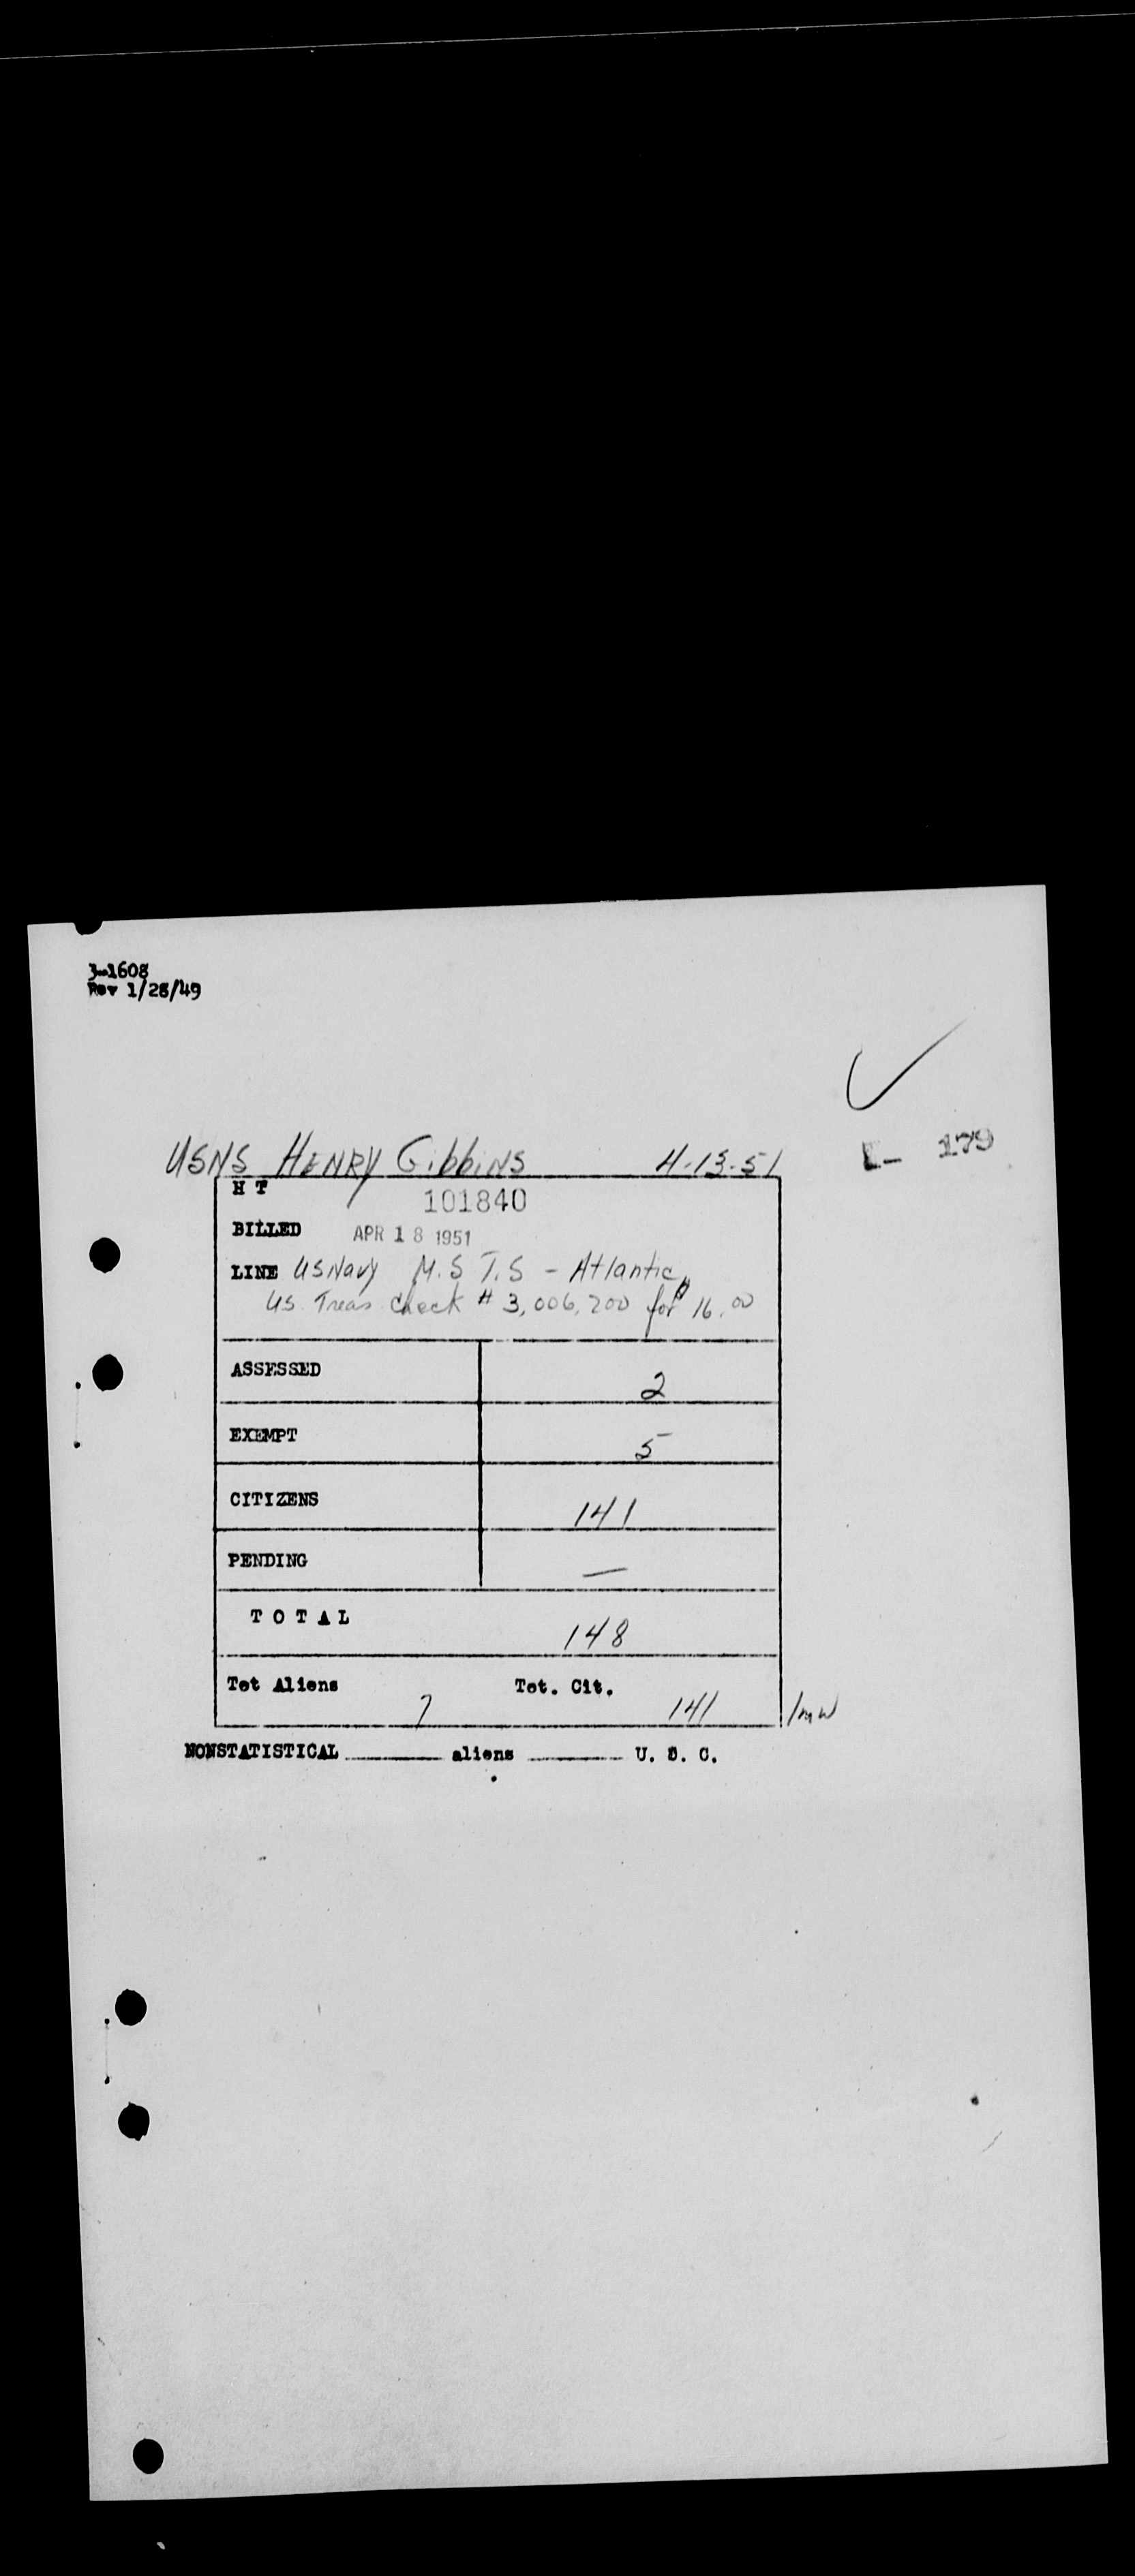 3-1608
Rev 1/28/49
USNS HENRY Gibbins 4-13-51
L- 179
H T 101840
BILLED APR 18 1951
LINE US Navy M.S.T.S - Atlantic
US. Treas. Check # 3,006,200 for $16.00
ASSESSED 2
EXEMPT 5
CITIZENS 141
PENDING —
TOTAL 148
Tot Aliens 7 Tot. Cit. 141 /mw
NONSTATISTICAL ______ aliens ______ U. S. C.